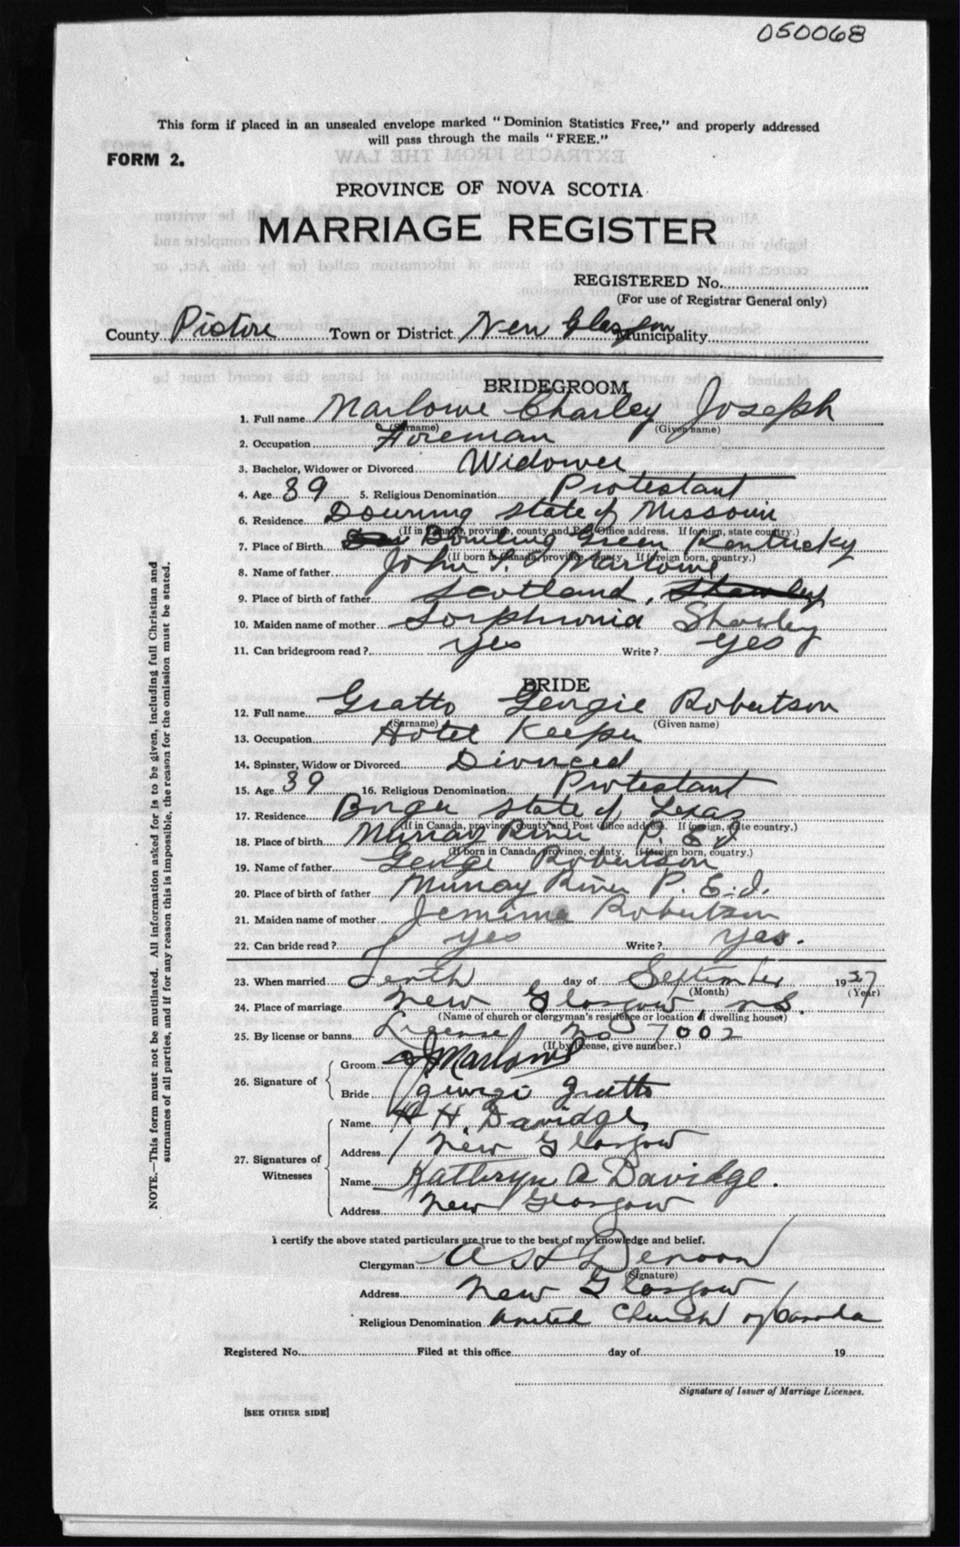 050068
This form if placed in an unsealed envelope marked "Dominion Statistics Free," and properly addressed
will pass through the mails "FREE."
FORM 2.
PROVINCE OF NOVA SCOTIA
MARRIAGE REGISTER
REGISTERED No.
(For use of Registrar General only)
County Pictou Town or District New Glasgow Municipality
BRIDEGROOM
1. Full name Marlowe Charley Joseph
(Surname) (Given name)
2. Occupation Foreman
3. Bachelor, Widower or Divorced Widower
4. Age 39 5. Religious Denomination Protestant
6. Residence Downing State of Missouri
(If in Canada, province, county and Post Office address. If foreign, state country.)
7. Place of Birth Bowling Green Kentucky
(If born in Canada, province, county. If foreign born, country.)
8. Name of father John Marlowe
9. Place of birth of father Scotland, Shawley
10. Maiden name of mother Sorphronia Shawley
11. Can bridegroom read? yes Write? yes
BRIDE
12. Full name Gratto Georgie Robertson
(Surname) (Given name)
13. Occupation Hotel Keeper
14. Spinster, Widow or Divorced Divorced
15. Age 39 16. Religious Denomination Protestant
17. Residence Borger State of Texas
(If in Canada, province, county and Post Office address. If foreign, state country.)
18. Place of birth Murray River P. E. I
(If born in Canada, province, county. If foreign born, country.)
19. Name of father George Robertson
20. Place of birth of father Murray River P. E. I.
21. Maiden name of mother Jemima Robertson
22. Can bride read? yes Write? yes.
23. When married Tenth day of September 1937
(Month) (Year)
24. Place of marriage New Glasgow, N.S.
(Name of church or clergyman's residence or location if dwelling house)
25. By license or banns License No 7002
(If by license, give number.)
26. Signature of
Groom C J Marlowe
Bride Georgie Gratto
27. Signatures of Witnesses
Name H H. Davidge
Address New Glasgow
Name Kathryn A Davidge.
Address New Glasgow
I certify the above stated particulars are true to the best of my knowledge and belief.
Clergyman Denoon
(Signature)
Address New Glasgow
Religious Denomination United Church of Canada
Registered No. Filed at this office day of 19
Signature of Issuer of Marriage Licenses.
[SEE OTHER SIDE]
NOTE.—This form must not be mutilated. All information asked for is to be given, including full Christian and
surnames of all parties, and if for any reason this is impossible, the reason for the omission must be stated.